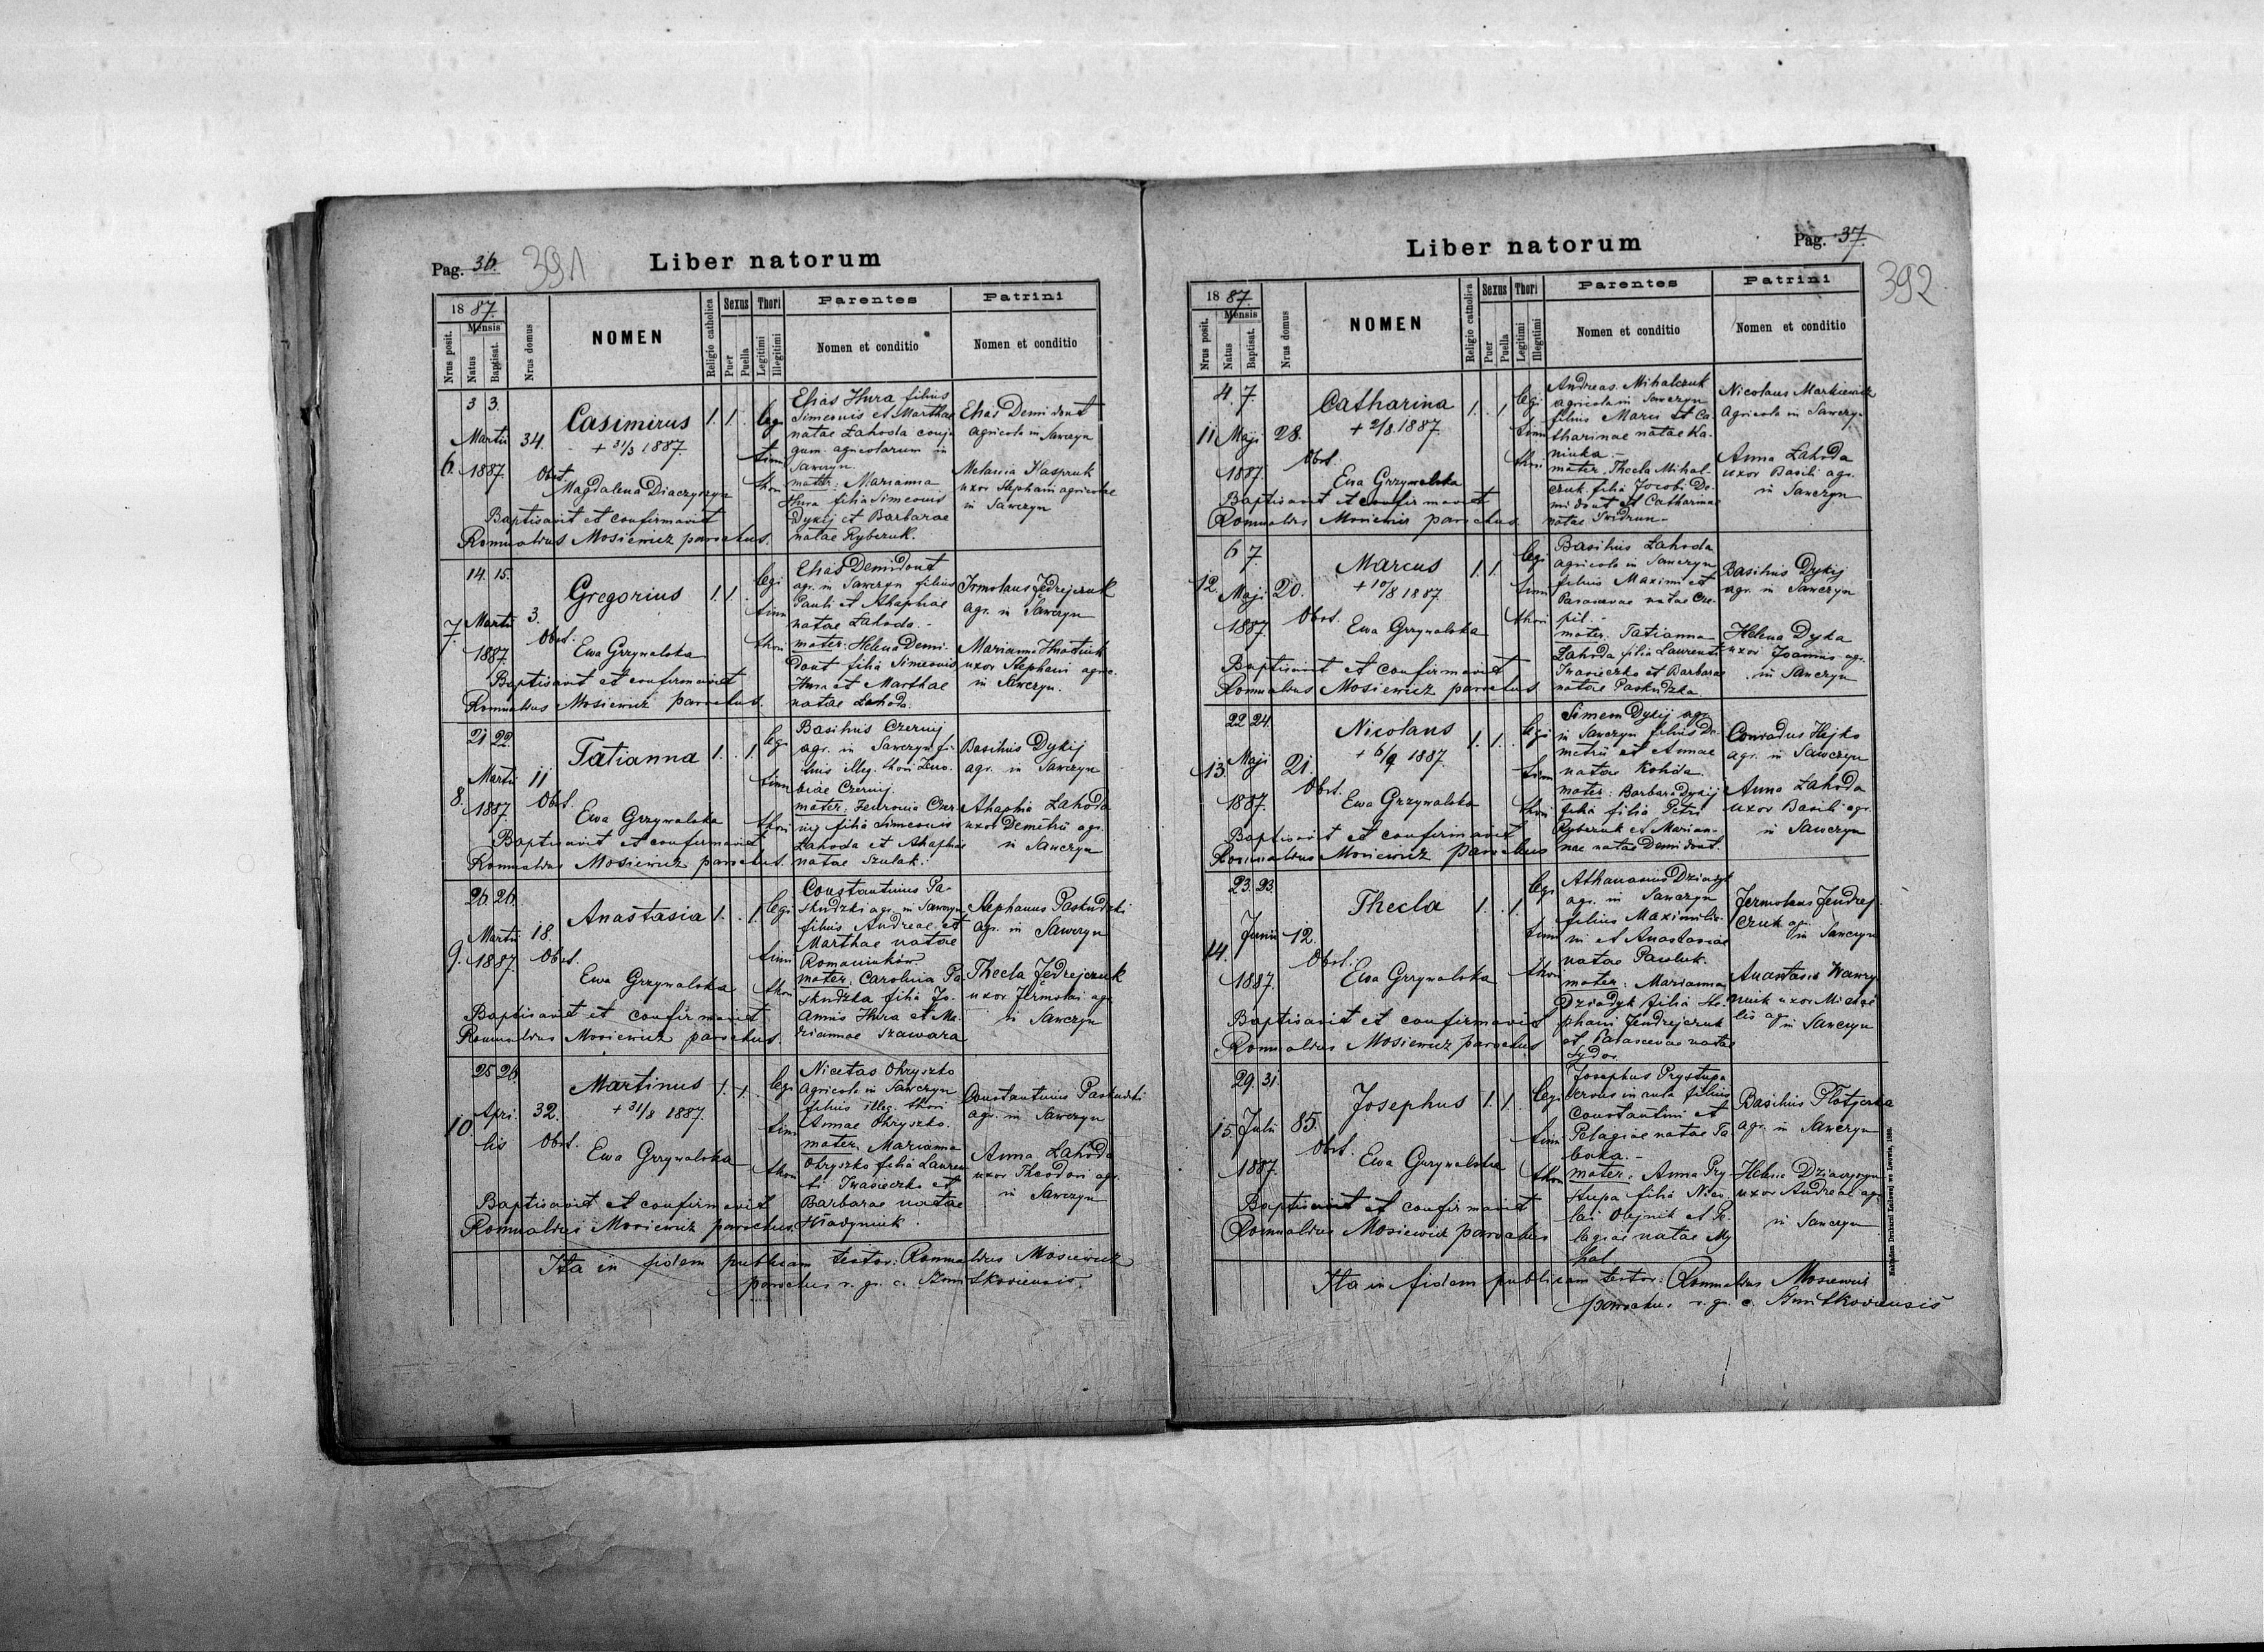 Pag. 36.
391
Liber natorum
18 87.
Mensis
Nrus posit.
Natus
Baptisat.
Nrus domus
NOMEN
Religio catholica
Sexus
Puer
Puella
Thori
Legitimi
Illegitimi
Parentes
Nomen et conditio
Patrini
Nomen et conditio
6.
3 3.
Martii
1887.
34.
Casimirus
+ 31/3 1887.
1. 1.
legi
timi
thori
Obst.
Magdalena Diaczyszyn
Baptisavit et confirmavit
Romualdus Mosiewicz parochus.
Elias Hura filius
Simeonis et Marthae
natae Lahoda conju
gum. agricolarum in
Sawczyn.
mater: Marianna
Hura filia Simeonis
Dykij et Barbarae
natae Ryberuk.
Elias Demidont
Agricola in Sawczyn
Melania Kaspruk
uxor Stephani agricolae
in Sawczyn
7.
14. 15.
Martii
1887.
3.
Gregorius
1. 1.
legi
timi
thori
Obst.
Ewa Grzywalska
Baptisavit et confirmavit
Romualdus Mosiewicz parochus.
Elias Demidont
agr. in Sawczyn filius
Pauli et Ahaphiae
natae Lahoda.-
mater: Helena Demi-
dont filia Simeonis
Hura et Marthae
natae Lahoda.
Irmolaus Jędrejczuk
agr. in Sawczyn
Marianna Hnatiuk
uxor Stephani agric.
in Sawczyn.
8.
21 22.
Martii
1887.
11
Tatianna
1. 1.
legi
timi
thori
Obst.
Ewa Grzywalska
Baptisavit et confirmavit
Romualdus Mosiewicz parochus.
Basilius Czernij
agr. in Sawczyn fi-
lius illeg. thori Zeno-
biae Czernij.
mater: Fewronia Czer
nij filia Simeonis
Lahoda et Ahaphiae
natae Szulak.
Basilius Dykij
agr. in Sawczyn
Ahaphia Lahoda
uxor Demetrii agr.
in Sawczyn
9.
26. 26.
Martii
1887.
18
Anastasia
1. 1.
legi
timi
thori
Obst.
Ewa Grzywalska
Baptisavit et confirmavit
Romualdus Mosiewicz parochus.
Constantinus Pa-
skudzki agr. in Sawczyn
filius Andreae et
Marthae natae
Romaniuków
mater: Carolina Pa-
skudzka filia Jo-
annis Hura et Ma-
riannae Szawara
Stephanus Paskudzki
agr. in Sawczyn
Thecla Jędrejczuk
uxor Jermolai agr.
in Sawczyn
10.
25 26.
Apri.
lis
32.
Martinus
+ 31/8 1887.
1. 1.
legi
timi
thori
Obst.
Ewa Grzywalska
Baptisavit et confirmavit
Romualdus Mosiewicz parochus.
Nicetas Ohryszko
Agricola in Sawczyn
filius illeg. thori
Annae Ohryszko.
mater: Marianna
Ohryszko filia Lauren
ti Iwasieczko et
Barbarae natae
Hładyniuk.
Constantinus Paskudzki
agr. in Sawczyn
Anna Lahoda
uxor Theodori agr.
in Sawczyn
Ita in fidem publicam testor: Romualdus Mosiewicz
parochus r. gr. c. Szmitkoviensis.
Pag. 37.
392
Liber natorum
18 87.
Mensis
Nrus posit.
Natus
Baptisat.
Nrus domus
NOMEN
Religio catholica
Sexus
Puer
Puella
Thori
Legitimi
Illegitimi
Parentes
Nomen et conditio
Patrini
Nomen et conditio
11
4. 7.
Maji
1887.
28.
Catharina
+ 2/8. 1887.
1. 1
legi
timi
thori
Obst.
Ewa Grzywalska
Baptisavit et confirmavit
Romualdus Mosiewicz parochus.
Andreas Mihalczuk
agricola in Sawczyn
filius Marci et Ca-
tharinae natae Ka-
niuka.-
mater: Thecla Mihal-
czuk filia Jacobi De-
midont et Catharinae
natae Swidrun-
Nicolaus Markiewicz
Agricola in Sawczyn
Anna Lahoda
uxor Basili agr.
in Sawczyn
12.
6 7.
Maji
1887
20.
Marcus
+ 10/8 1887.
1. 1.
legi
timi
thori
Obst.
Ewa Grzywalska
Baptisavit et confirmavit
Romualdus Mosiewicz parochus.
Basilius Lahoda
agricola in Sawczyn
filius Maximi et
Parascevae natae Cze-
pil.-
mater: Tatianna
Lahoda filia Laurenti
Iwasieczko et Barbarae
natae Paskudzka
Basilius Dykij
agr. in Sawczyn
Helena Dyka
uxor Joannis agr.
in Sawczyn
13.
22 24.
Maji
1887.
21.
Nicolaus
+ 6/9 1887.
1. 1.
legi
timi
thori
Obst.
Ewa Grzywalska
Baptisavit et confirmavit
Romualdus Mosiewicz parochus
Simeon Dykij agr.
in Sawczyn filius De-
metrii et Annae
natae Kohda.
mater: Barbara Dykij
filia filia Petri
Ryberuk et Marian-
nae natae Demidont.
Conradus Hejko
agr. in Sawczyn
Anna Lahoda
uxor Basili agr.
in Sawczyn
14.
23. 23.
Junii
1887.
12.
Thecla
1. 1.
legi
timi
thori
Obst.
Ewa Grzywalska
Baptisavit et confirmavit
Romualdus Mosiewicz parochus
Athanasius Dziadyk
agr. in Sawczyn
filius Maximilia-
ni et Anastasiae
natae Pawluk.
mater: Marianna
Dziadyk filia Ste-
phani Jendrejczuk
et Parascevae natae
Sydor.
Jermolaus Jendrej-
czuk agr.
in Sawczyn
Anastasia Wawry-
niuk uxor Michae
lis agr. in Sawczyn
15.
29. 31.
Julii
1887.
85.
Josephus
1. 1.
legi
timi
thori
Obst.
Ewa Grzywalska
Baptisavit et confirmavit
Romualdus Mosiewicz parochus
Josephus Prystupa
servus in aula filius
Constantini et
Pelagiae natae Ta-
boka.-
mater: Anna Pry-
stupa filia Nico-
lai Olejnik et Pe-
lagiae natae My
hal
Basilius Plotyczka
agr. in Sawczyn
Helena Dziaczyszyn
uxor Andreae agr.
in Sawczyn
Ita in fidem publicam testor: Romualdus Mosiewicz
parochus r. gr. c. Szmitkoviensis
Nakładem Drukarni Ludowej we Lwowie, 1880.